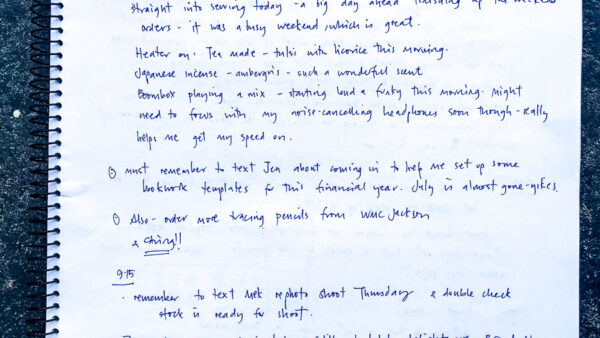 straight into sewing today - a big day ahead finishing up the weekend
orders - it was a busy weekend, which is great.
Heater on. Tea made - tulsi with licorice this morning.
Japanese incense - ambergris - such a wonderful scent
Boombox playing a mix - starting loud & funky this morning. Might
need to focus with my noise-cancelling headphones soon though - really
helps me get my speed on.
must remember to text Jen about coming in to help me set up some
bookwork templates for this financial year. July is almost gone - yikes.
Also - order more tracing pencils from WMC Jackson
& string!!
9:15
· remember to text Mek re photo shoot Thursday & double check
stock is ready for shoot.